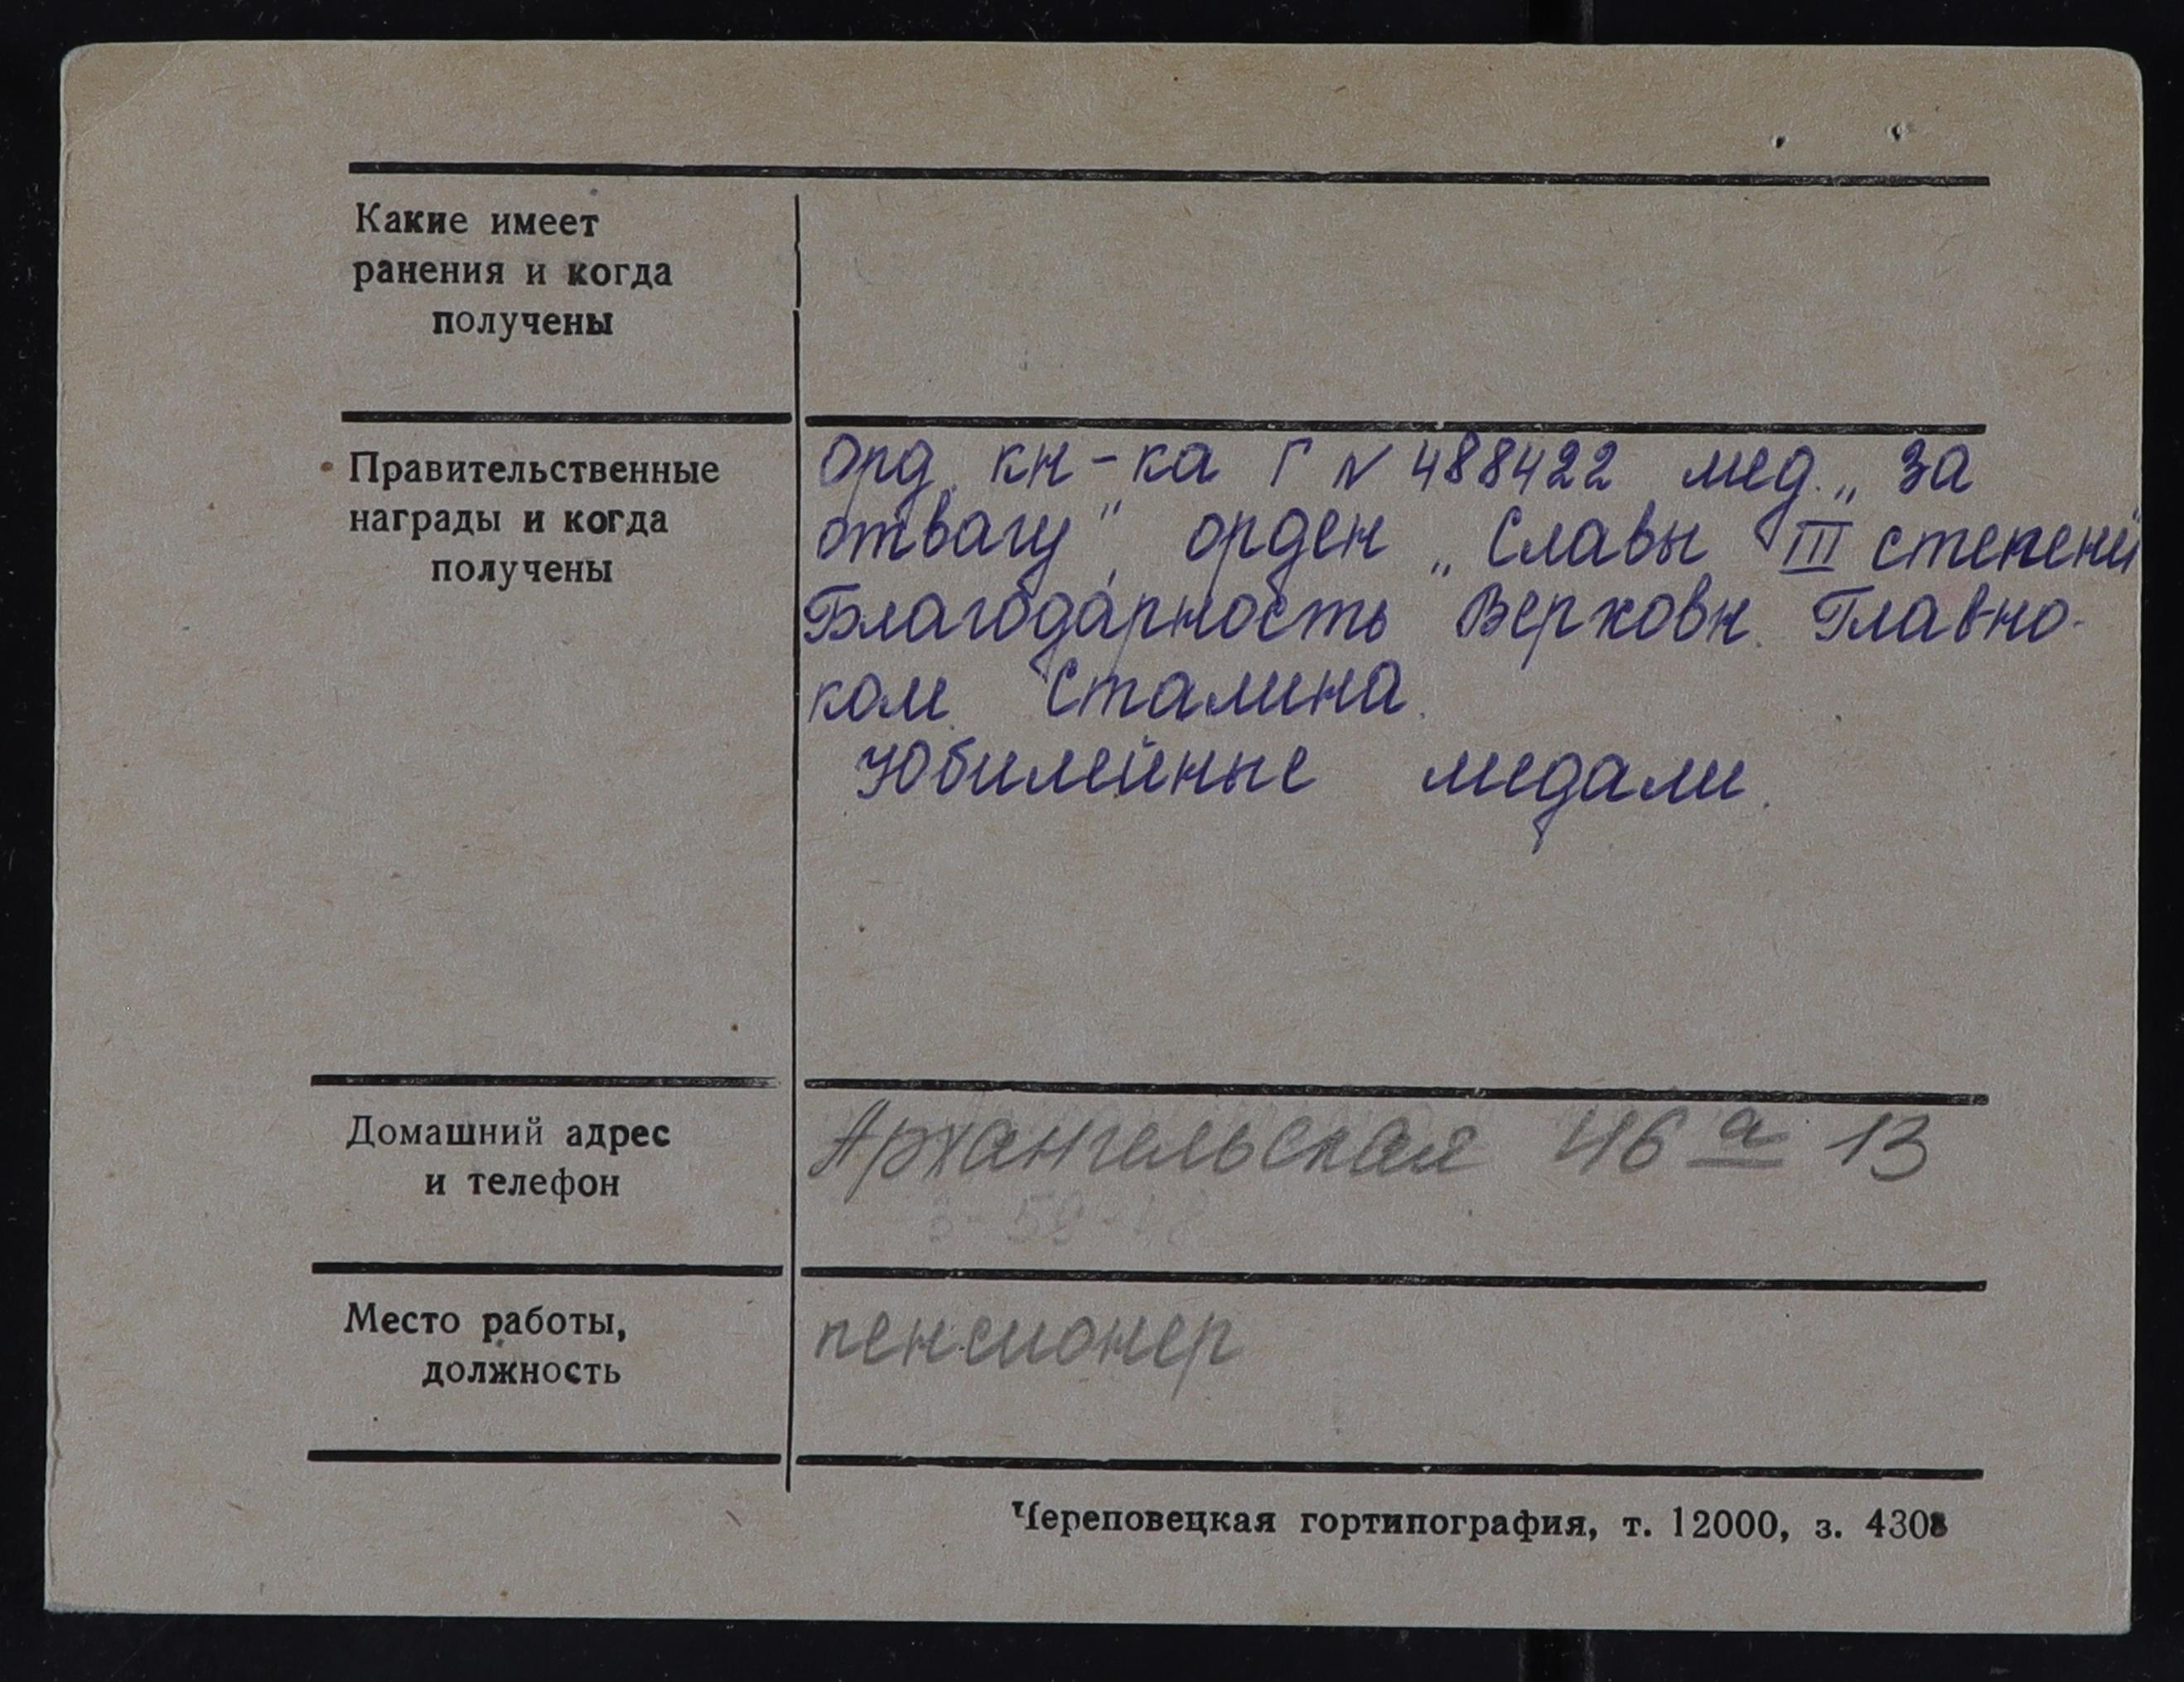 Какие имеет
ранения и когда
получены
Правительственные
награды и когда
получены
Орд. кн-ка Г № 488422 мед. „За
отвагу", орден „Славы III степени
Благодарность Верховн. Главно-
ком. Сталина.
Юбилейные медали.
Домашний адрес
и телефон
Архангельская 46 а 13
Место работы,
должность
пенсионер
Череповецкая гортипография, т. 12000, з. 4308